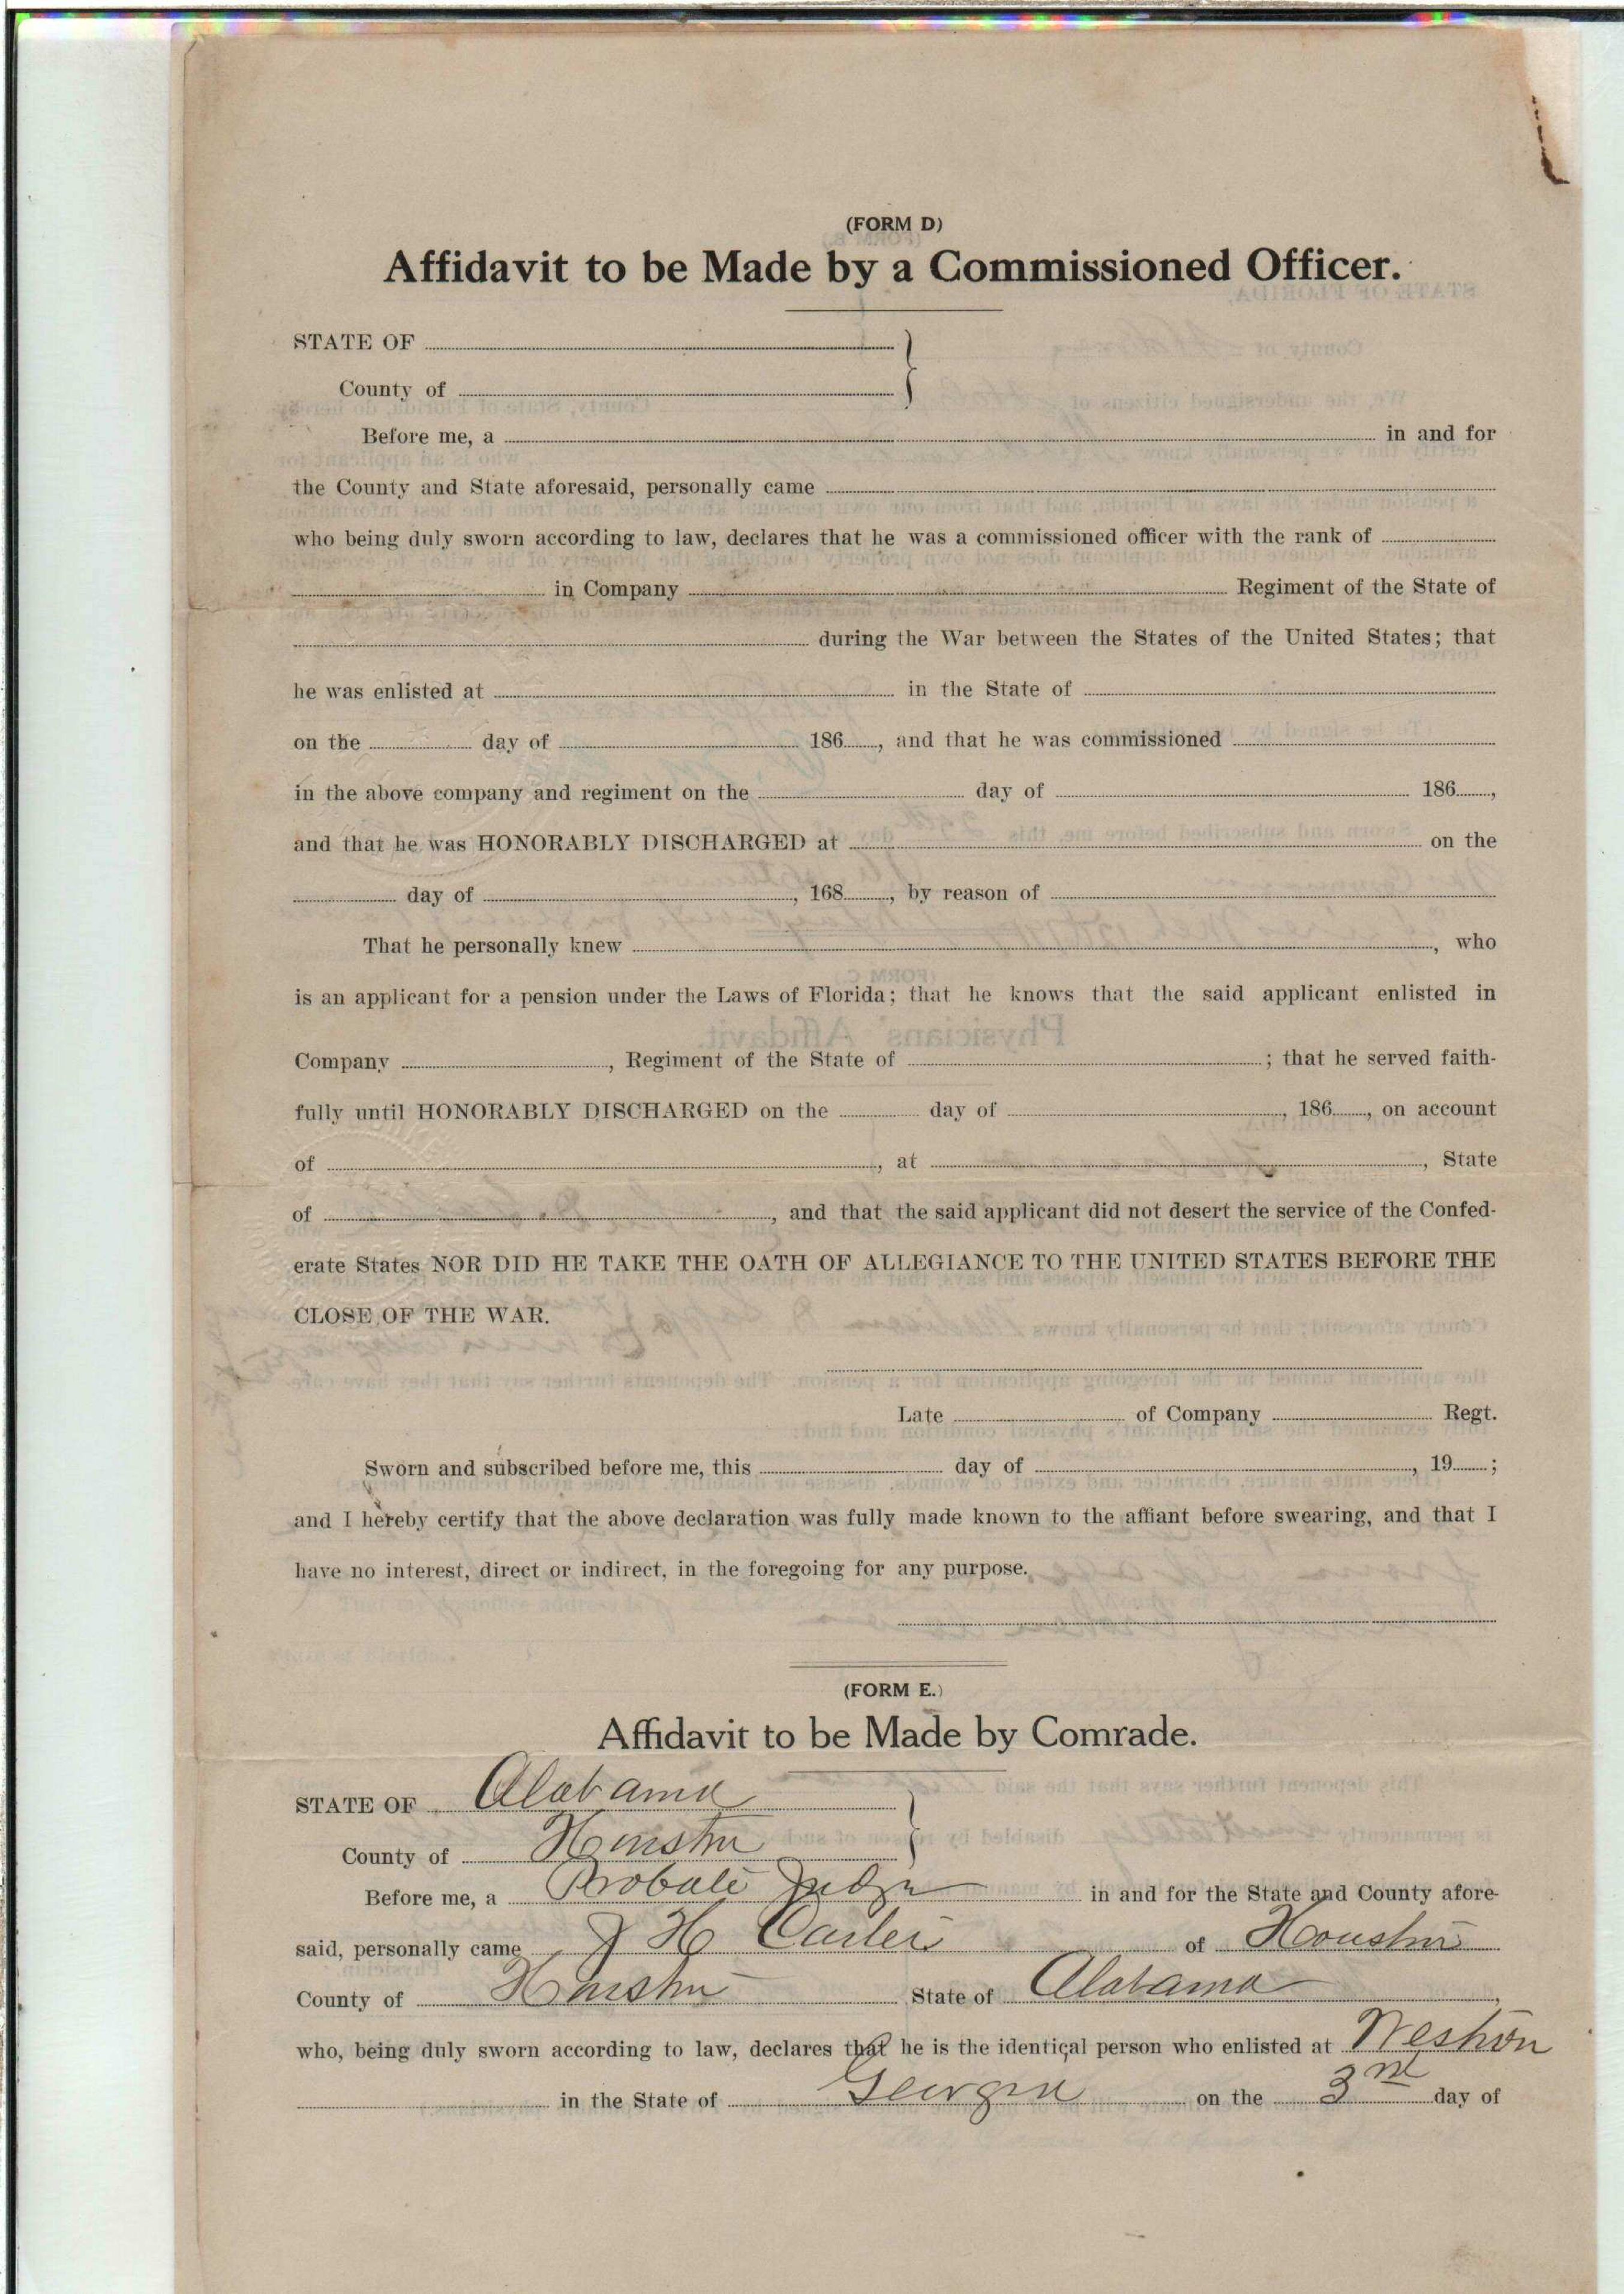 (FORM D)
Affidavit to be Made by a Commissioned Officer.
STATE OF
County of
Before me, a in and for
the County and State aforesaid, personally came
who being duly sworn according to law, declares that he was a commissioned officer with the rank of
in Company Regiment of the State of
during the War between the States of the United States; that
he was enlisted at in the State of
on the day of 186 , and that he was commissioned
in the above company and regiment on the day of 186 ,
and that he was HONORABLY DISCHARGED at on the
day of , 168 , by reason of
That he personally knew , who
is an applicant for a pension under the Laws of Florida; that he knows that the said applicant enlisted in
Company , Regiment of the State of ; that he served faith-
fully until HONORABLY DISCHARGED on the day of , 186 , on account
of , at , State
of , and that the said applicant did not desert the service of the Confed-
erate States NOR DID HE TAKE THE OATH OF ALLEGIANCE TO THE UNITED STATES BEFORE THE
CLOSE OF THE WAR.
Late of Company Regt.
Sworn and subscribed before me, this day of , 19 ;
and I hereby certify that the above declaration was fully made known to the affiant before swearing, and that I
have no interest, direct or indirect, in the foregoing for any purpose.
(FORM E.)
Affidavit to be Made by Comrade.
STATE OF Alabama
County of Houston
Before me, a Probate Judge in and for the State and County afore-
said, personally came J H Carter of Houston
County of Houston State of Alabama
who, being duly sworn according to law, declares that he is the identical person who enlisted at Weston
in the State of Georgia on the 3rd day of